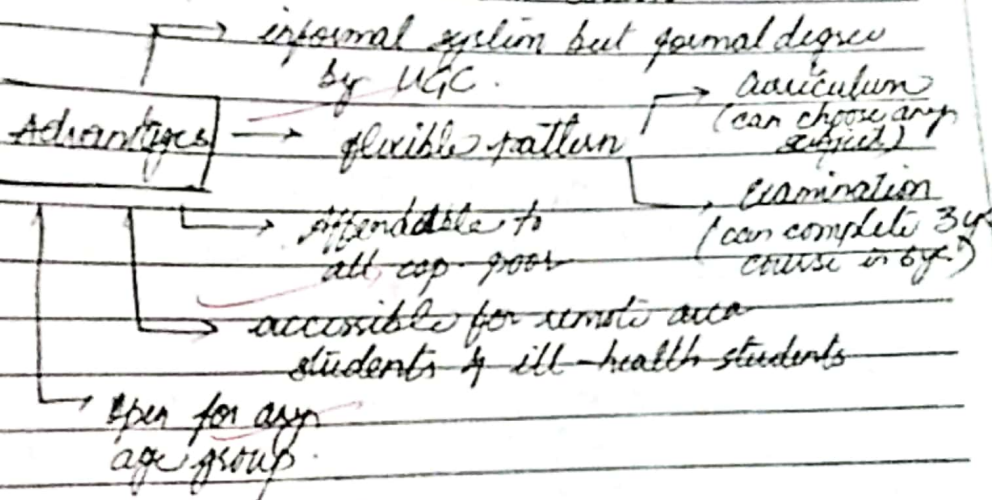 informal system but formal degree
by UGC.
Advantages
flexible pattern
curriculum
(can choose any
subject)
Examination
(can complete 3 yr
course in 6 yr.)
Affordable to
all esp. poor
accessible for remote area
students & ill-health students
Open for any
age group.